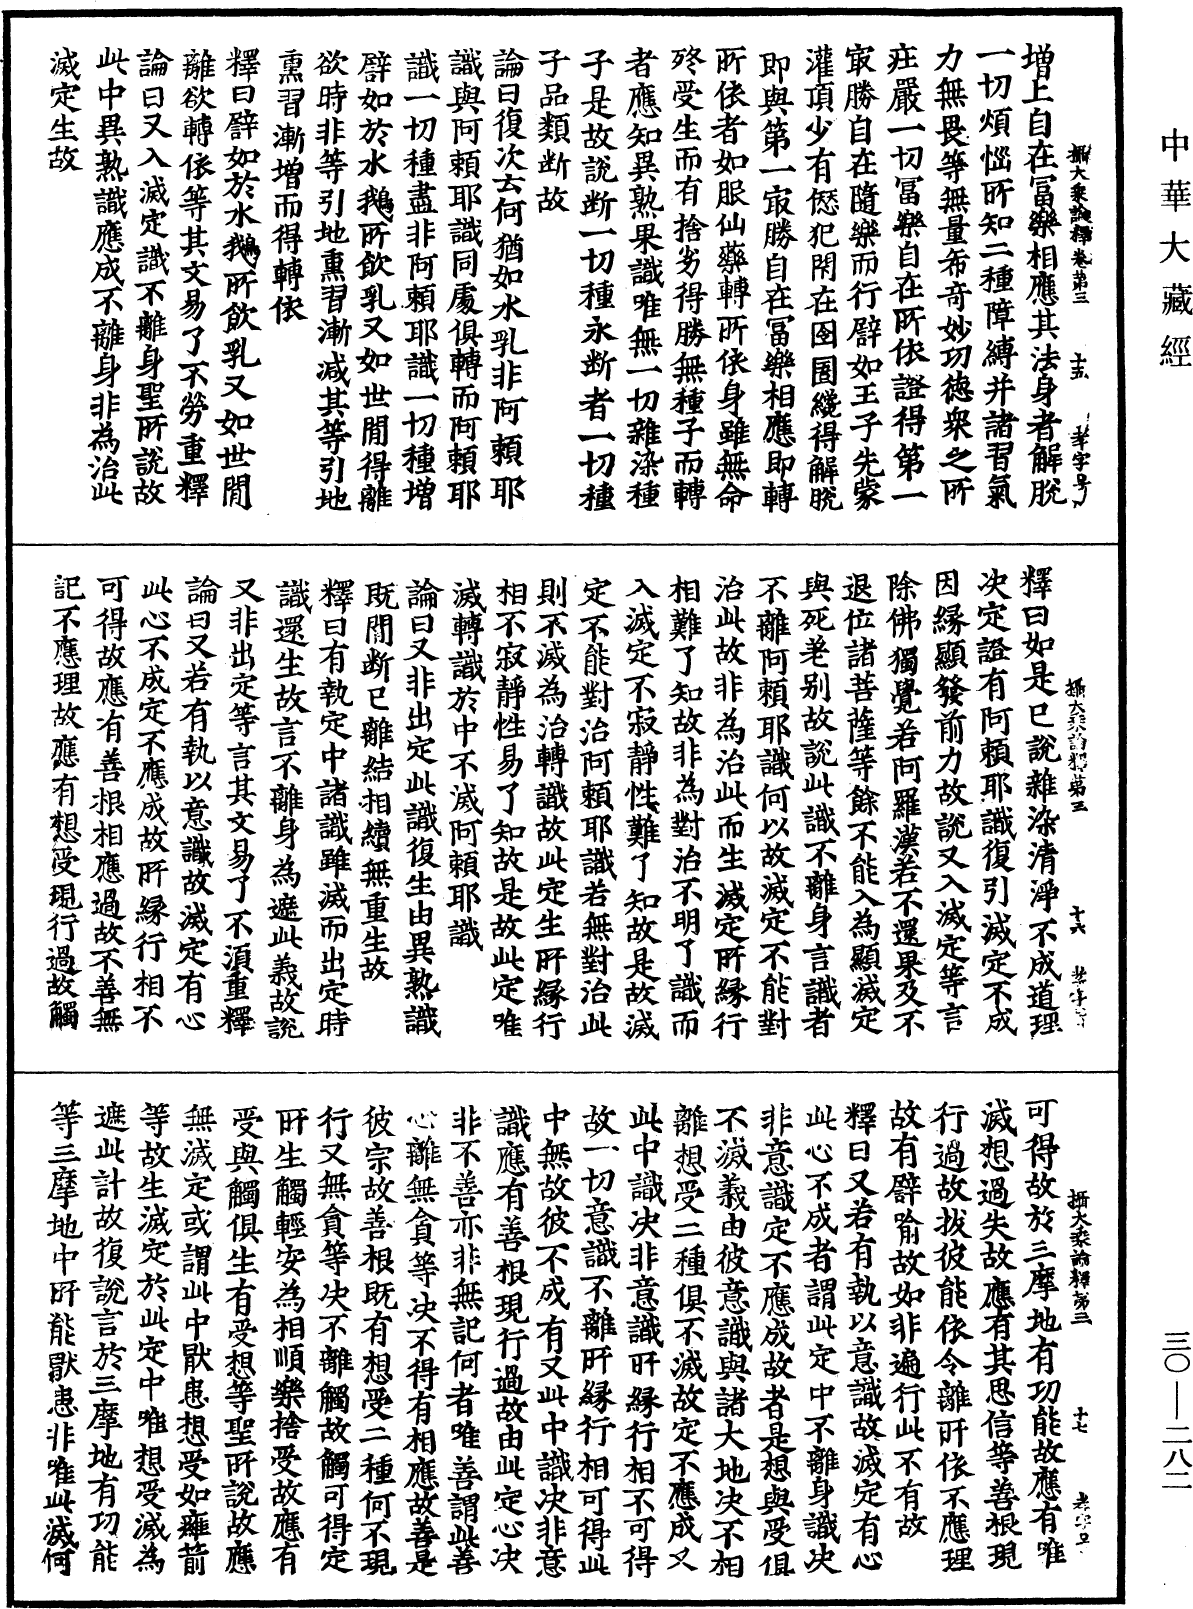 中華大藏經
三〇—二八二
攝大乘論釋卷第三　十五　華字号
增上自在冨樂相應其法身者解脫
一切煩惱所知二種障縛并諸習氣
力無畏等無量希奇妙功德衆之所
莊嚴一切冨樂自在所依證得第一
冣勝自在隨樂而行譬如王子先蒙
灌頂少有愆犯閇在囹圄纔得解脫
即與第一冣勝自在冨樂相應即轉
所依者如服仙藥轉所依身雖無命
終受生而有捨劣得勝無種子而轉
者應知異熟果識唯無一切雜染種
子是故說断一切種永断者一切種
子品類断故
論曰復次云何猶如水乳非阿賴耶
識與阿賴耶識同處俱轉而阿賴耶
識一切種盡非阿賴耶識一切種增
譬如於水鵝所飲乳又如世閒得離
欲時非等引地熏習漸減其等引地
熏習漸增而得轉依
釋曰譬如於水鵝所飲乳又如世閒
離欲轉依等其文易了不勞重釋
論曰又入滅定識不離身聖所說故
此中異熟識應成不離身非為治此
滅定生故
攝大乘論釋第三　十六
釋曰如是已說雜染清淨不成道理
決定證有阿賴耶識復引滅定不成
因緣顯發前力故說又入滅定等言
除佛獨覺若阿羅漢若不還果及不
退位諸菩薩等餘不能入為顯滅定
與死差別故說此識不離身言識者
不離阿賴耶識何以故滅定不能對
治此故非為治此而生滅定所緣行
相難了知故非為對治不明了識而
入滅定不寂靜性難了知故是故滅
定不能對治阿賴耶識若無對治此
則不滅為治轉識故此定生所緣行
相不寂靜性易了知故是故此定唯
滅轉識於中不滅阿賴耶識
論曰又非出定此識復生由異熟識
既閒斷已離結相續無重生故
釋曰有執定中諸識雖滅而出定時
識還生故言不離身為遮此義故說
又非出定等言其文易了不湏重釋
論曰又若有執以意識故滅定有心
此心不成定不應成故所緣行相不
可得故應有善根相應過故不善無
記不應理故應有想受現行過故觸
攝大乘論釋第三　十七
可得故於三摩地有功能故應有唯
滅想過失故應有其思信等善根現
行過故拔彼能依令離所依不應理
故有譬喻故如非遍行此不有故
釋曰又若有執以意識故滅定有心
此心不成者謂此定中不離身識決
非意識定不應成故者是想與受俱
不滅義由彼意識與諸大地决不相
離想受二種俱不滅故定不應成又
此中識决非意識所緣行相不可得
故一切意識不離所緣行相可得此
中無故彼不成有又此中識决非意
識應有善根現行過故由此定心決
非不善亦非無記何者唯善謂此善
心離無貪等决不得有相應故善是
彼宗故善根既有想受二種何不現
行又無貪等决不離觸故觸可得定
所生觸輕安為相順樂捨受故應有
受與觸俱生有受想等聖所說故應
無滅定或謂此中猒患想受如癰箭
等故生滅定於此定中唯想受滅為
遮此計故復說言於三摩地有功能
等三摩地中所能猒患非唯此滅何